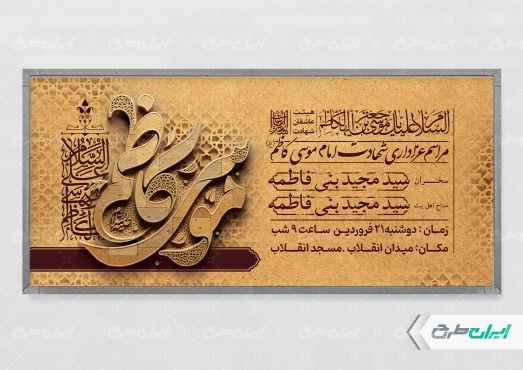 السلام علیک یا موسی بن جعفر الکاظم
هیئت
عاشقان
شهادت
مراسم عزاداری شهادت امام موسی کاظم (ع)
سخنران سید مجید بنی فاطمه
مداح اهل بیت سید مجید بنی فاطمه
زمان : دوشنبه ۲۱ فروردین ساعت ۹ شب
مکان: میدان انقلاب .مسجد انقلاب
موسی کاظم
ایران طرح